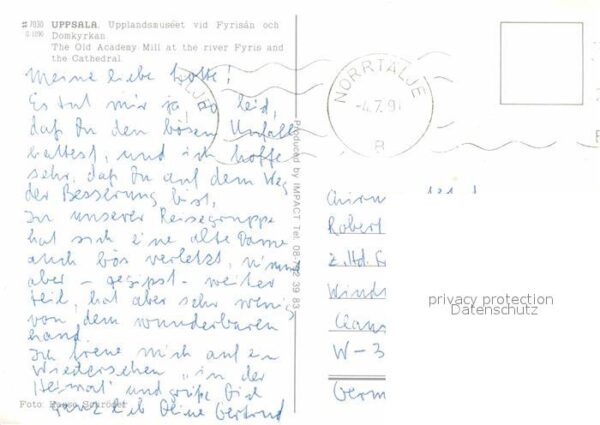 # 7030 UPPSALA. Upplandsmuséet vid Fyrisån och
G 1090 Domkyrkan
The Old Academy Mill at the river Fyris and
the Cathedral
Meine liebe Lotte!
Es tut mir ja so leid,
daß Du den bösen Unfall
hattest, und ich hoffe
sehr, daß Du auf dem Weg
der Besserung bist.
In unserer Reisegruppe
hat sich eine alte Dame
auch bös verletzt, nimmt
aber - gegipst - weiter
teil, hat aber sehr wenig
von dem wunderbaren
Land.
Ich freue mich auf ein
Wiedersehen "in der
Heimat" und grüße Dich
ganz lieb Deine Gertrud
Foto: Hasse Schröder
Produced by IMPACT Tel 08-39 83
NORRTÄLJE
-4.7.91
B
Robert
z. Hd.
Winds
Claus
W-3
Germ
privacy protection
Datenschutz